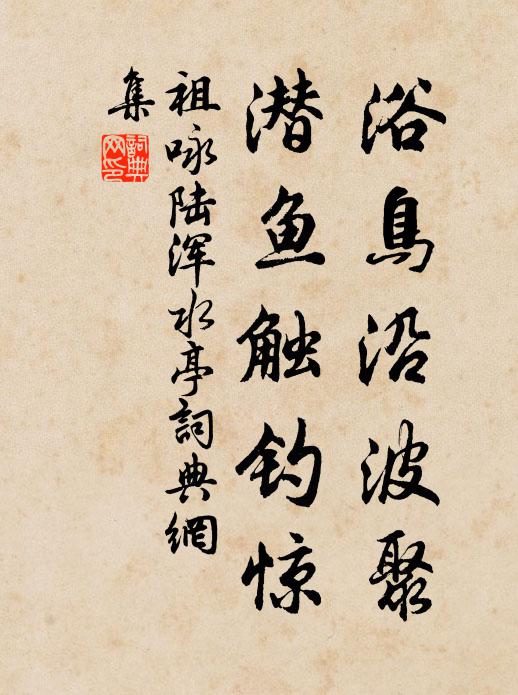 浴鸟沿波聚
潜鱼触钓惊
祖咏陆浑水亭詞典網
集
詞典
网印